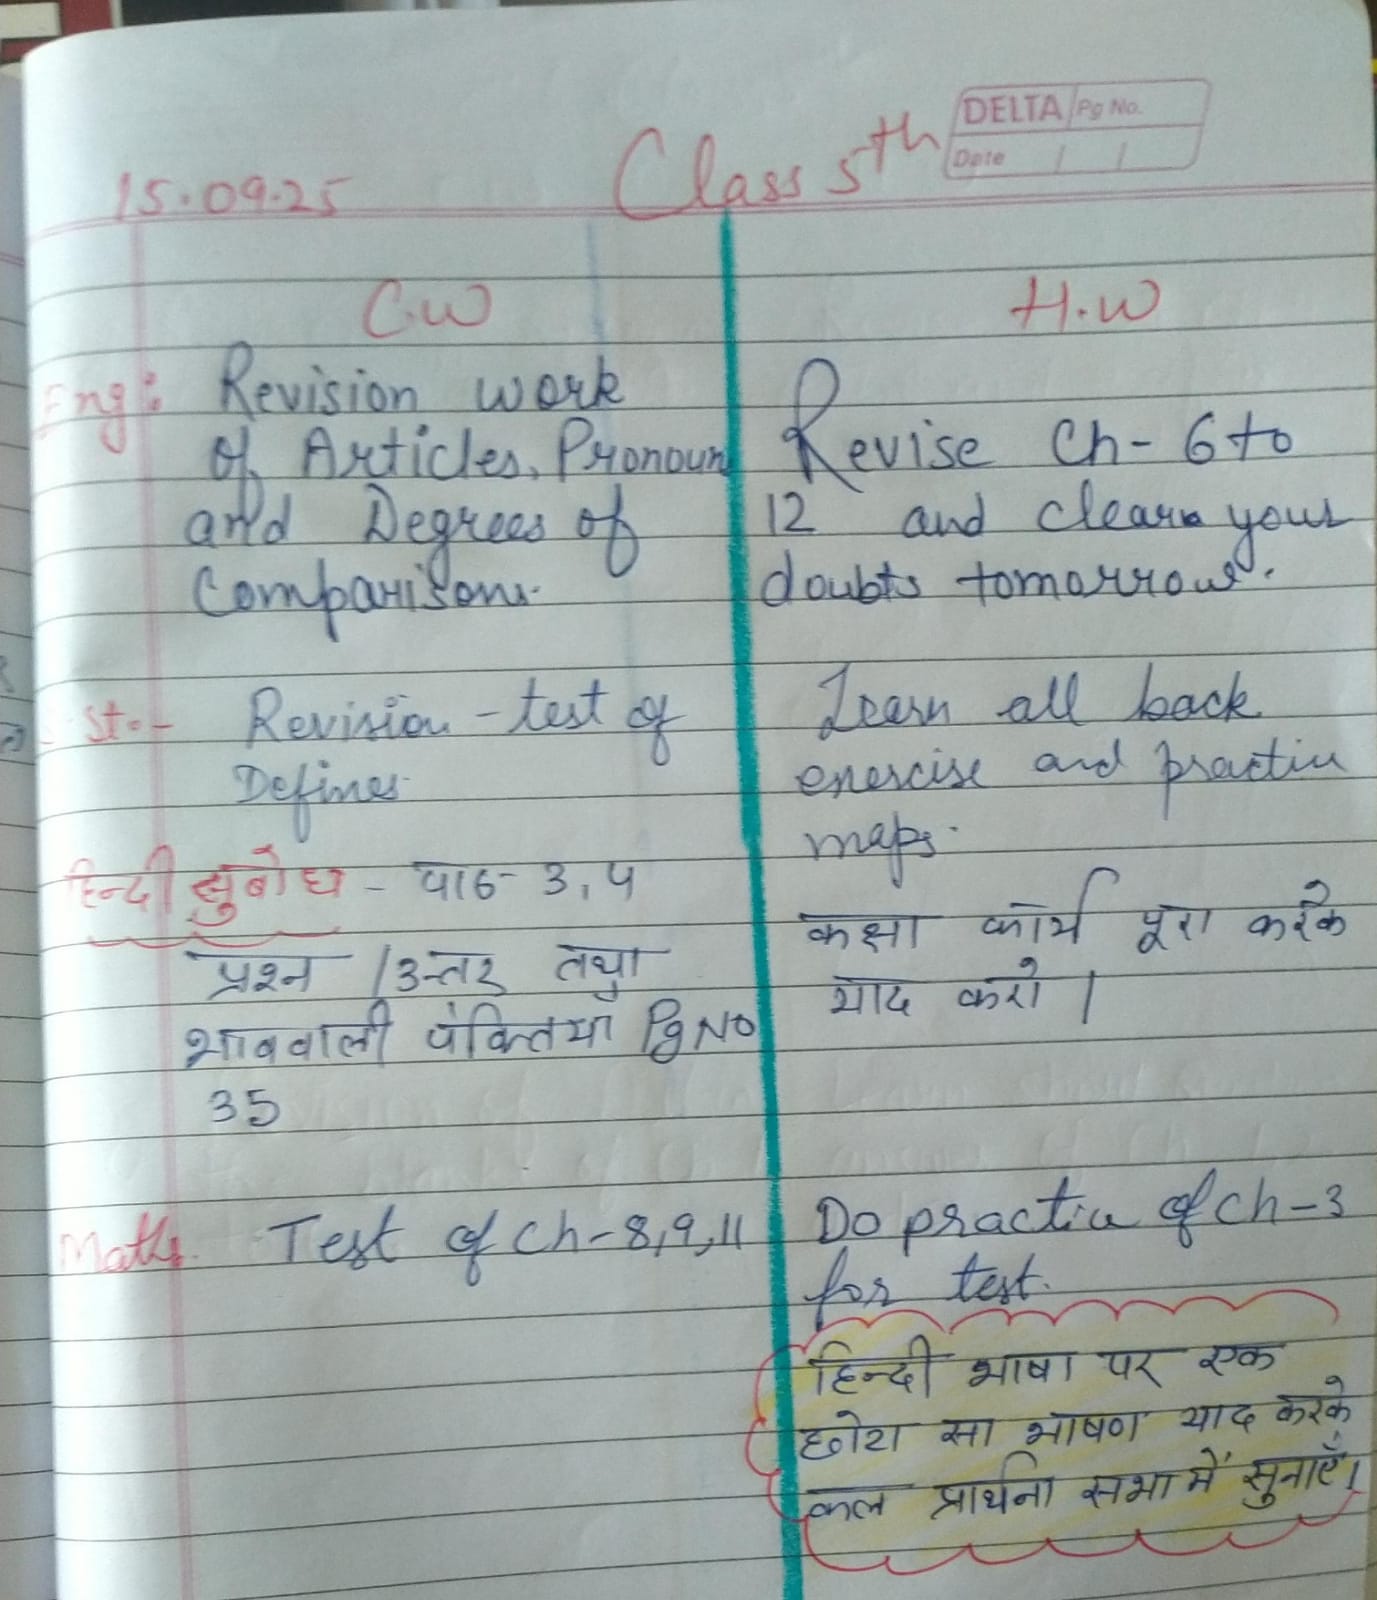 DELTA Pg No.
Date / /
15.09.25 Class 5th
C.W
Eng: Revision work
of Articles, Pronoun
and Degrees of
Comparisons.
S.St:- Revision - test of
Defines.
हिन्दी सुबोध - पाठ- 3, 4
प्रश्न / उत्तर तथा
भाववाली पंक्तियाँ Pg No
35
Maths. Test of Ch-8,9,11
H.W
Revise Ch- 6 to
12 and clear your
doubts tomorrow.
Learn all back
exercise and practice
maps.
कक्षा कार्य पूरा करके
याद करो।
Do practice of Ch-3
for test.
हिन्दी भाषा पर एक
छोटा सा भाषण याद करके
कल प्रार्थना सभा में सुनाएँ।